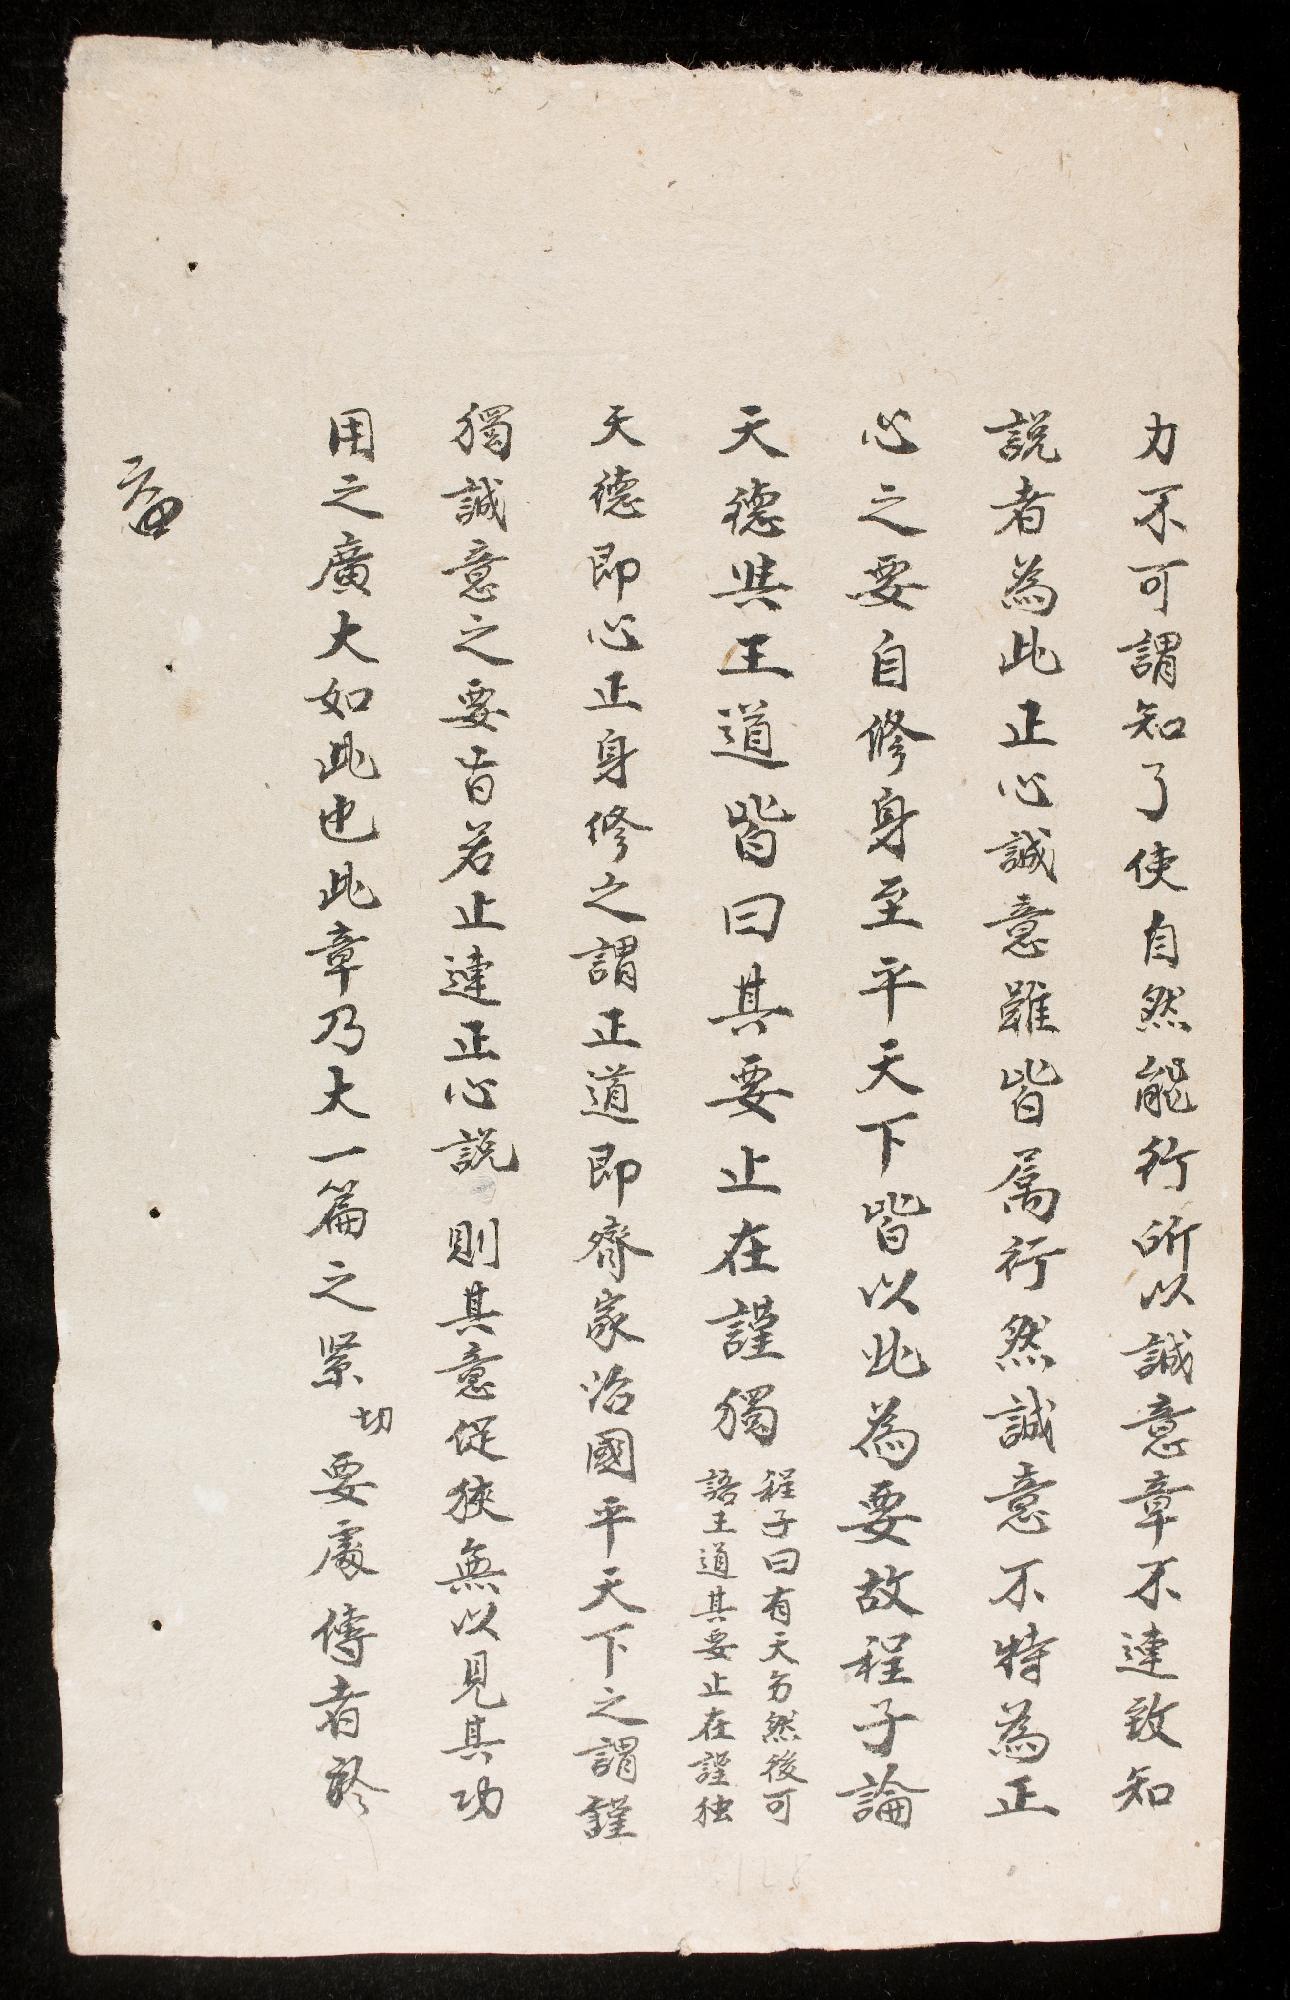 力不可謂知了使自然能行所以誠意章不連致知
說者為此正心誠意雖皆屬行然誠意不特為正
心之要自修身至平天下皆以此為要故程子論
天德與王道皆曰其要止在謹獨
程子曰有天另然後可
語王道其要止在謹独
天德即心正身修之謂正道即齊家治國平天下之謂謹
獨誠意之要旨若止連正心說則其意促狹無以見其功
用之廣大如此也此章乃大一篇之緊切要處傳者